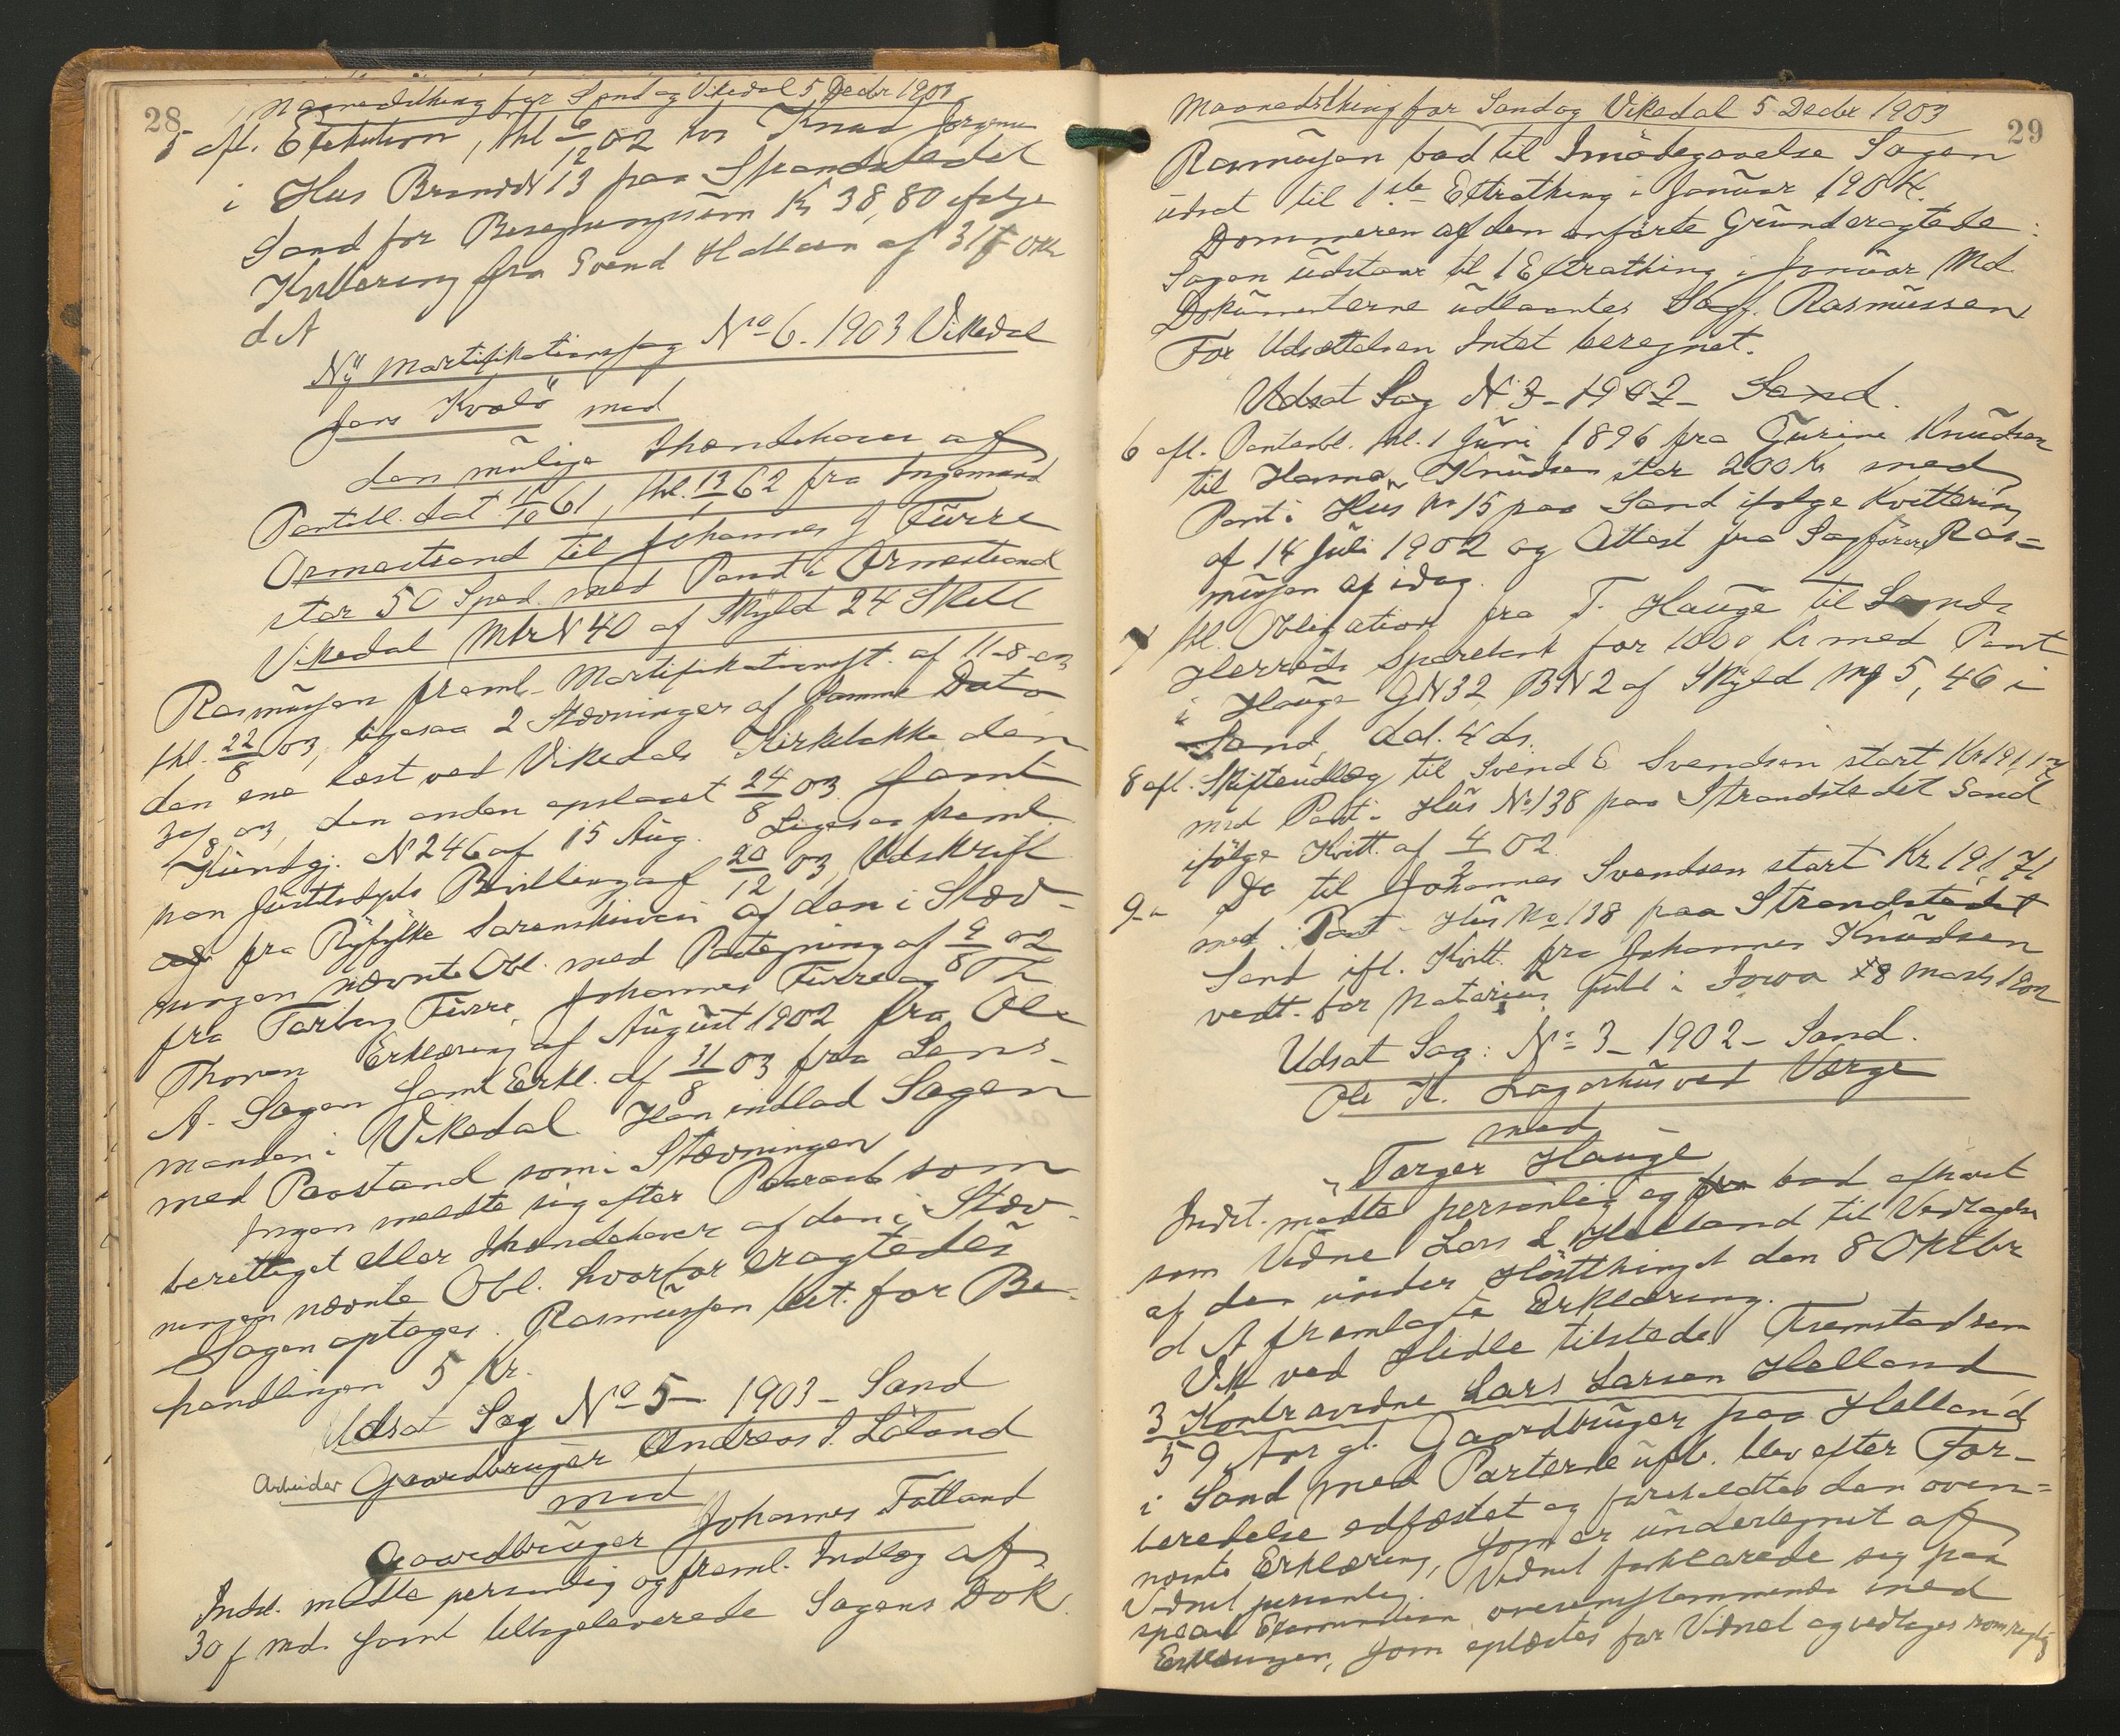 28
Maanedsthing for Sand og Vikedal 5 Decbr 1903
5 afl. Exekution, thl 6/12 02 hos Knud Jørgensen
i Hus Brandn N 13 paa Strandstedet
Sand for Besegningssum Kr 38,80 ifølge
Kvittering fra Svend Helleren af 31 Okt
d A
Ny Mortifikationssag No 6. 1903 Vikedal
Jens Kvalø med
den mulige Ihændehaver af
Pantobl. dat 11/10 61, thl. 13/1 62 fra Ingemund
Ormestrand til Johannes J Furre
stor 50 Spd. med Pant i Ormestrand
Vikedal Mtr N 40 af Skyld 24 Skill
Rasmussen freml. Mortifikationsst. af 11-8-03
thl. 22/8 03, ligesaa 2 Stævninger af samme Dato
den ene læst ved Vikedals Kirkebakke den
30/8 03, den anden opslaaet 24/8 03 samt
Kundgj. N 246 af 15 Aug. Ligesaa freml.
han Justitsdpts Bevilling af 20/12 03, Udskrift
fra Ryfylke Sorenskriveri af den i Stæv-
ningen nævnte Obl. med Paategning af 9/8 02
fra Torben Furre, Johannes Furre og Th
Thoren Erklæring af August 1902 fra Ole
A. Sagen samt Erkl. af 31/8 03 fra Lens-
manden i Vikedal. Han indlod Sagen
med Paastand som i Stævningen
Ingen meldte sig efter Paaraab som
berettiget eller Ihændehaver af den i Stæv-
ningen nævnte Obl. hvorfor eragtedes
Sagen optages. Rasmussen bet. for Be-
handlingen 5 Kr.
Udsat Sag No 5 - 1903 - Sand
Arbeider Gaardbruger Andreas I. Løland
med
Gaardbruger Johannes Fatland
Indst. mødte personlig og freml. Indlæg af
30 f Md. samt tilbageleverede Sagens Dok.
29
Maanedsthing for Sand og Vikedal 5 Decbr 1903
Rasmussen bad til Imødegaaelse Sagen
udsat til 1ste Extrathing i Januar 1904.
Dommeren af den anførte Grund eragtede:
Sagen udstaar til 1 Extrathing i Januar Md.
Dokumenterne udlaantes Sagf. Rasmussen
For Udsættelsen Intet beregnet.
Udsat Sag N 3 - 1902 - Sand.
6 afl. Panteobl. thl. 1 Juni 1896 fra Gurine Knudsen
til Hanna Knudsen stor 200 Kr med
Pant i Hus No 15 paa Sand ifølge Kvittering
af 14 Juli 1902 og Attest fra Sagfører Ras=
mussen af idag.
7 thl. Obligation fra T. Hauge til Sands
Herreds Sparebank for 1000 Kr med Pant
i Hauge GN 32, BN 2 af Skyld Mk 5,46 i
Sand, dd. 4 ds.
8 afl. Skifteudlæg til Svend E Svendsen stort Kr 191,
med Pant i Hus No 138 paa Strandstedet Sand
ifølge Kvitt. af 4/3 02.
9 - Do til Johannes Svendsen stort Kr. 191,71
med Pant i Hus No 138 paa Strandstedet
Sand ifl. Kvitt. fra Johannes Knudsen
vedt. for Notarius Publ i Iowa 18 Marts 1902
Udsat Sag: No 3 - 1902 - Sand.
Ole K. Lagarhus ved Værge
med
Torger Hauge
Indst. mødte personlig og bad afhørt
som Vidne Lars L Helland til Vedtagelse
af den under Høstthinget den 8 Oktbr
d A fremlagte Erklæring.
Vik ved Hidle tilstede. Fremstod som
3 Kontravidne Lars Larsen Helland
59 Aar gl. Gaardbruger paa Helland
i Sand, med Parterne ubsl. blev efter For-
beredelse edfæstet og foreholdtes den oven=
nævnte Erklæring, som er undertegnet af
Vidnet personlig. Vidnet forklarede sig paa
speciel Examination overensstemmende med
Erklæringen, som oplæstes for Vidnet og vedtoges som rigtig